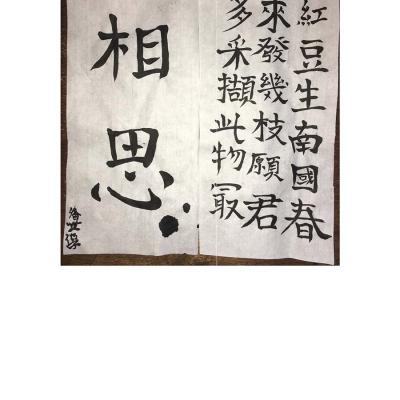 紅豆生南國春
來發幾枝願君
多采擷此物冣
相思